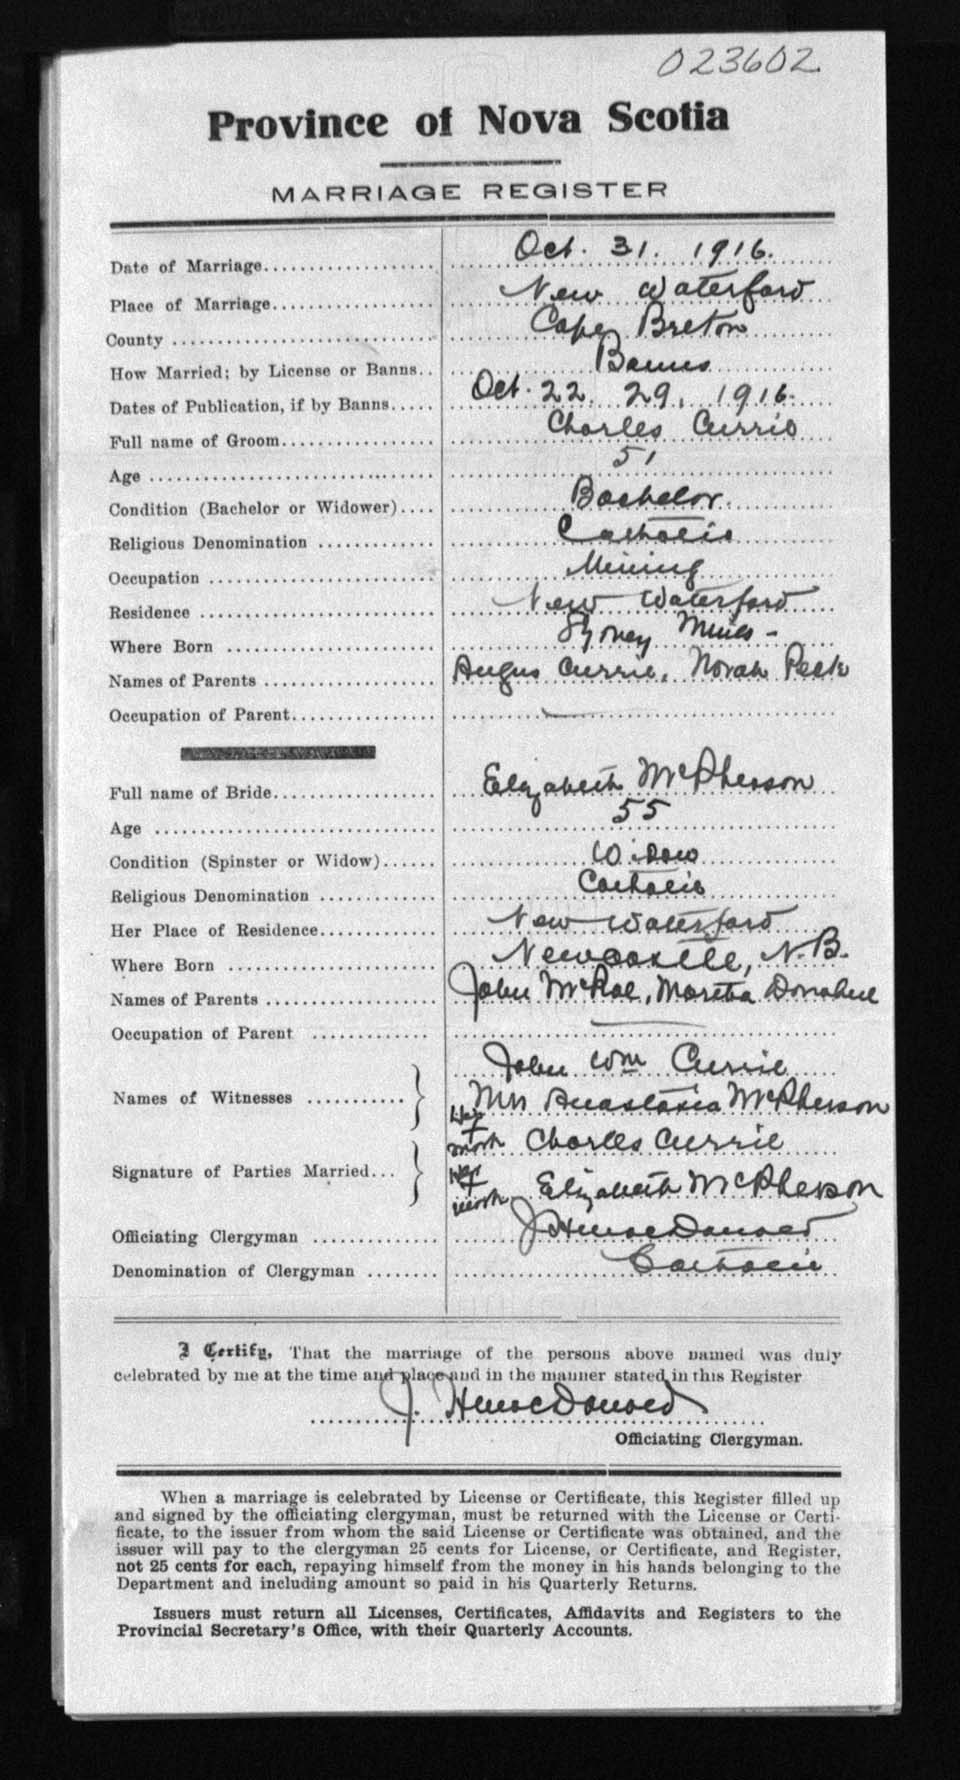 023602
Province of Nova Scotia
MARRIAGE REGISTER
Date of Marriage.................. Oct. 31. 1916.
Place of Marriage................. New Waterford
County .......................... Cape Breton
How Married; by License or Banns.. Banns
Dates of Publication, if by Banns..... Oct. 22. 29. 1916.
Full name of Groom................ Charles Currie
Age .............................. 51
Condition (Bachelor or Widower).... Bachelor.
Religious Denomination ............ Catholic
Occupation ....................... Mining
Residence ........................ New Waterford
Where Born ....................... Sydney Mines -
Names of Parents .................. Angus Currie, Norah Peck
Occupation of Parent............... —
Full name of Bride................. Elizabeth McPherson
Age .............................. 55
Condition (Spinster or Widow)...... Widow
Religious Denomination ............ Catholic
Her Place of Residence............. New Waterford
Where Born ....................... Newcastle, N.B.
Names of Parents .................. John McRae, Martha Donahue
Occupation of Parent ............ —
John Wm Currie
Names of Witnesses ........... Mrs Anastasia McPherson
his X mark Charles Currie
Signature of Parties Married... her X mark Elizabeth McPherson
Officiating Clergyman ............. J. H. MacDonald
Denomination of Clergyman ........ Catholic
I Certify, That the marriage of the persons above named was duly
celebrated by me at the time and place and in the manner stated in this Register
J. H. MacDonald
Officiating Clergyman.
When a marriage is celebrated by License or Certificate, this Register filled up
and signed by the officiating clergyman, must be returned with the License or Certi-
ficate, to the issuer from whom the said License or Certificate was obtained, and the
issuer will pay to the clergyman 25 cents for License, or Certificate, and Register,
not 25 cents for each, repaying himself from the money in his hands belonging to the
Department and including amount so paid in his Quarterly Returns.
Issuers must return all Licenses, Certificates, Affidavits and Registers to the
Provincial Secretary's Office, with their Quarterly Accounts.